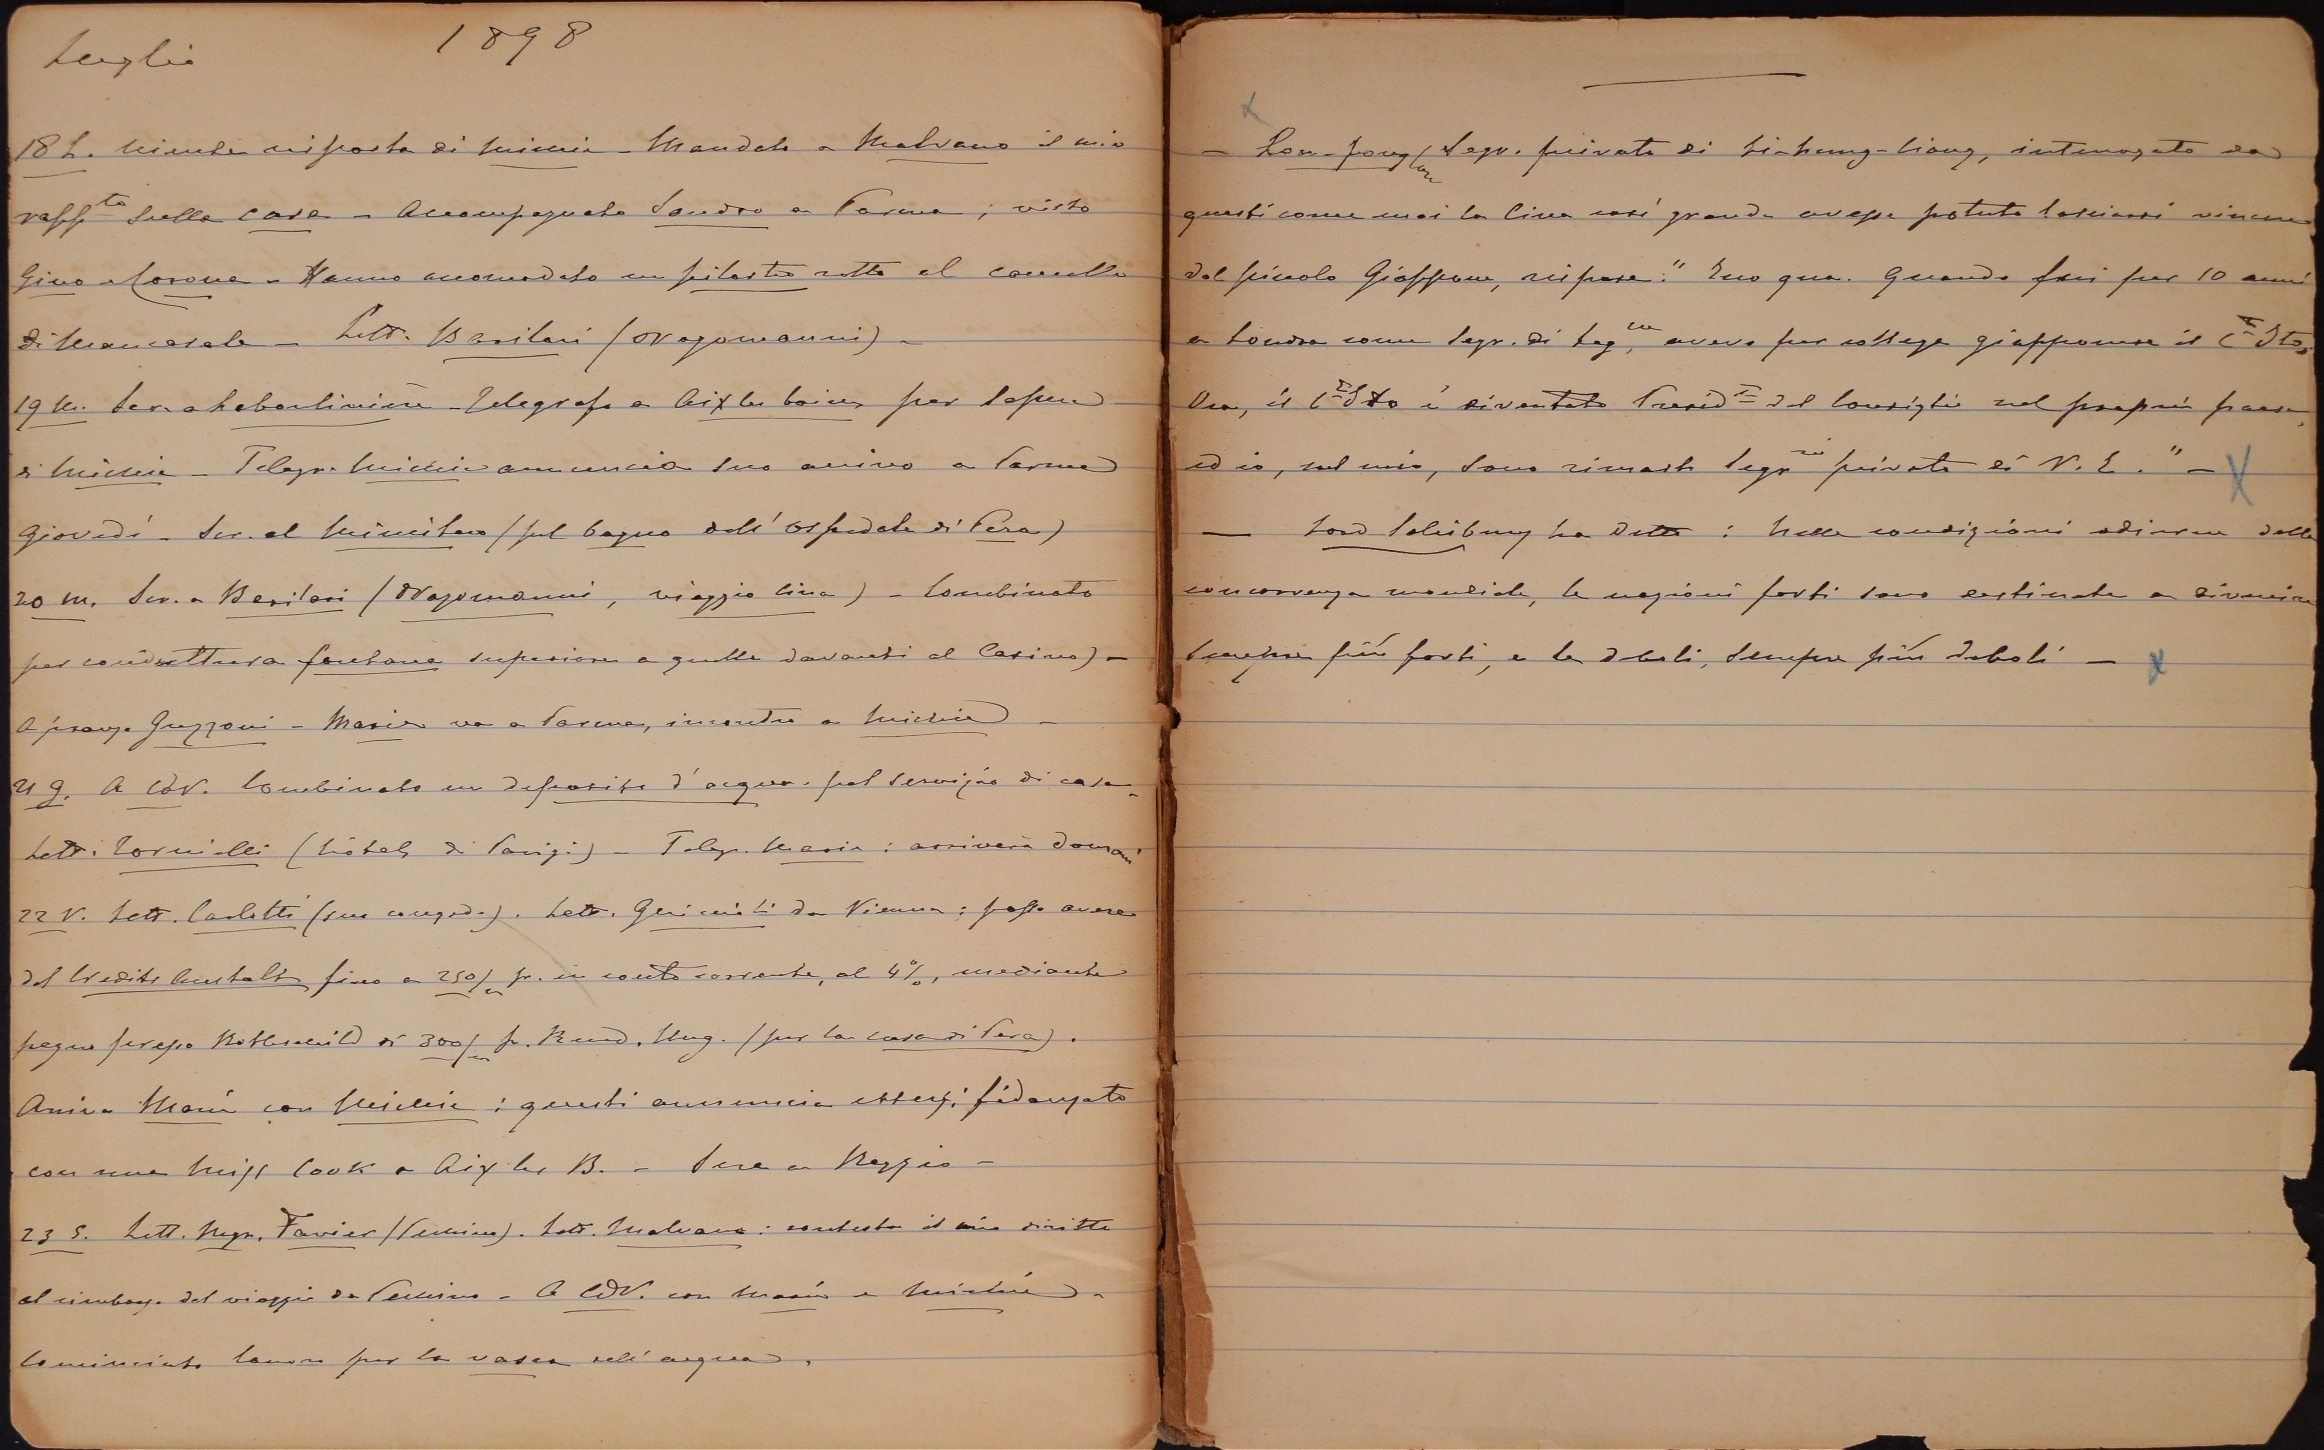 Luglio 1898
18 L. Niente risposta di Michie - Mandato a Malvano il mio
rapp.to sulla casa - Accompagnato Sandro a Parma; visto
Gino - Hanno accomodato un pilastro rotto al cancello
di Mancasale - Lett. Basilari (Dragomanni) -
19 M. Scr. a - Telegrafo a Aix les bains per sapere
di Michie - Telegr. Michie annuncia suo arrivo a Parma
Giovedí - Scr. al Ministero (sul bagno dell'Ospedale di Pera)
20 M. Scr. a Basilari (Dragomanni, viaggio Cina) - Combinato
per conduttura fontana superiore a quella davanti al Casino) -
A pranzo Guzzoni - Maria va a Parma, incontro a Michie -
21 G. A CdV. Combinato un deposito d'acqua pel servizio di casa -
Lett. Tornielli (hôtel di Parigi) - Telegr. Maria: arriverà domani
22 V. Lett. Carlotti (suo congedo). Lett. da Vienna: posso avere
dal Credit Anstalt fino a 250/m fr. in conto corrente, al 4%, mediante
pegno presso Rothschild di 300/m fr. Rend. Ung. (per la casa di Pera).
Arriva Maria con Michie: questi annuncia essersi fidanzato
con una Miss Cook a Aix les B. - Sera a Reggio -
23 S. Lett. Mgr. Favier (Pechino). Lett. Malvano: contesta il mio diritto
al rimborso del viaggio da Pechino - A CdV. con Maria e Michie -
Cominciato lavoro per la vasca dell'acqua.
- Segr. privato di Li-hung-Ciang, interrogato da
questi come mai la Cina cosí grande avesse potuto lasciarsi vincere
dal piccolo Giappone, rispose: " Ecco qua. Quando fui per 10 anni
a Londra come Segr. di Leg.ne, avevo per collega giapponese il C.te Ito,
Ora, il C.te Ito è diventato Presid.te del Consiglio nel proprio paese,
ed io, nel mio, sono rimasto Segr.rio privato di V. E. " -
- Lord Salisbury ha detto: Nelle condizioni odierne della
concorrenza mondiale, le nazioni forti sono destinate a divenire
sempre più forti, e le deboli, sempre più deboli -